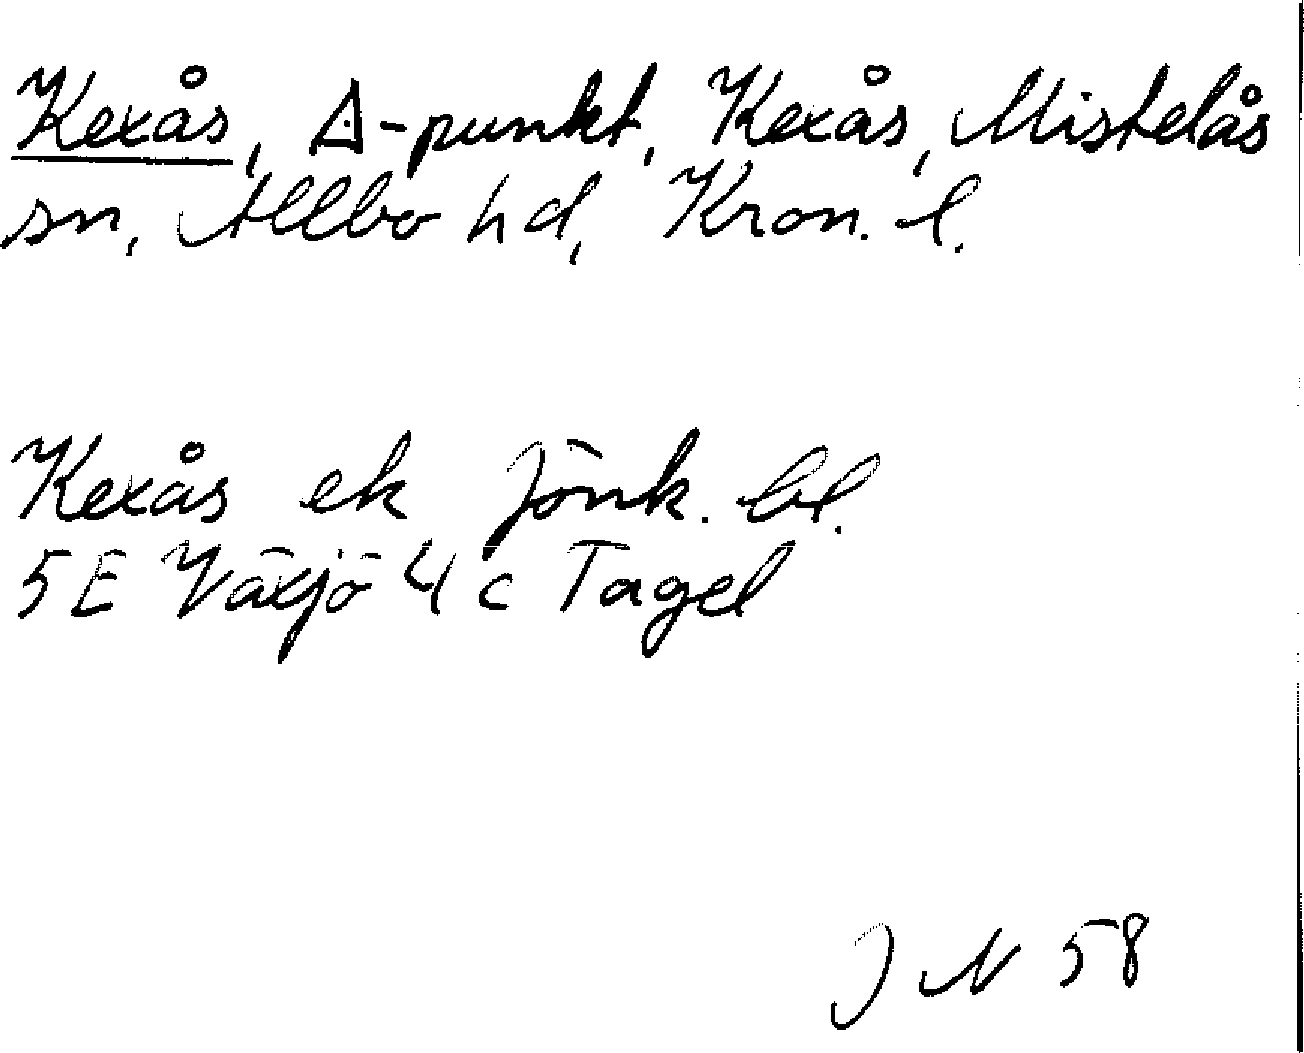 Kexås, △-punkt, Kexås, Mistelås
sn, Allbo hd, Kron. l.
Kexås ek Jönk. bl.
5E Växjö 4 c Tagel
J N 58